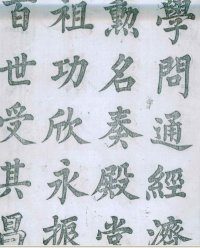 學問通經濟
勳名奏殿
祖功欣永振
百世受其昌